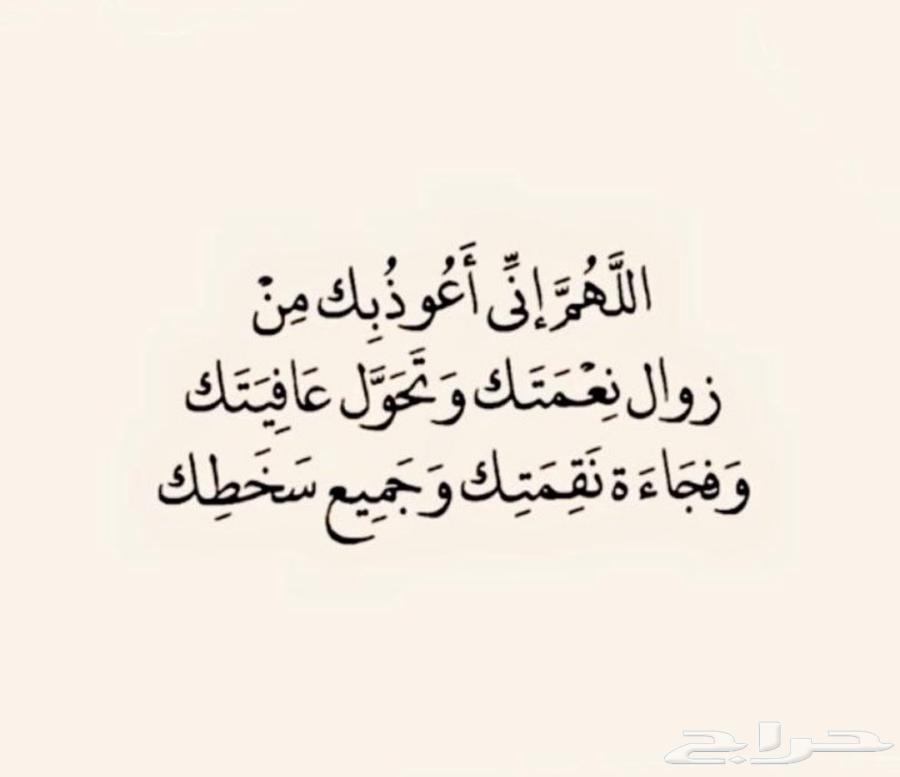 اللَّهُمَّ إنِّي أَعُوذُبِك مِنْ
زوال نِعْمَتَك وَتَحَوَّل عَافِيَتَك
وَفجَاءَة نَقِمَتِك وَجَمِيع سَخَطِك
حراج